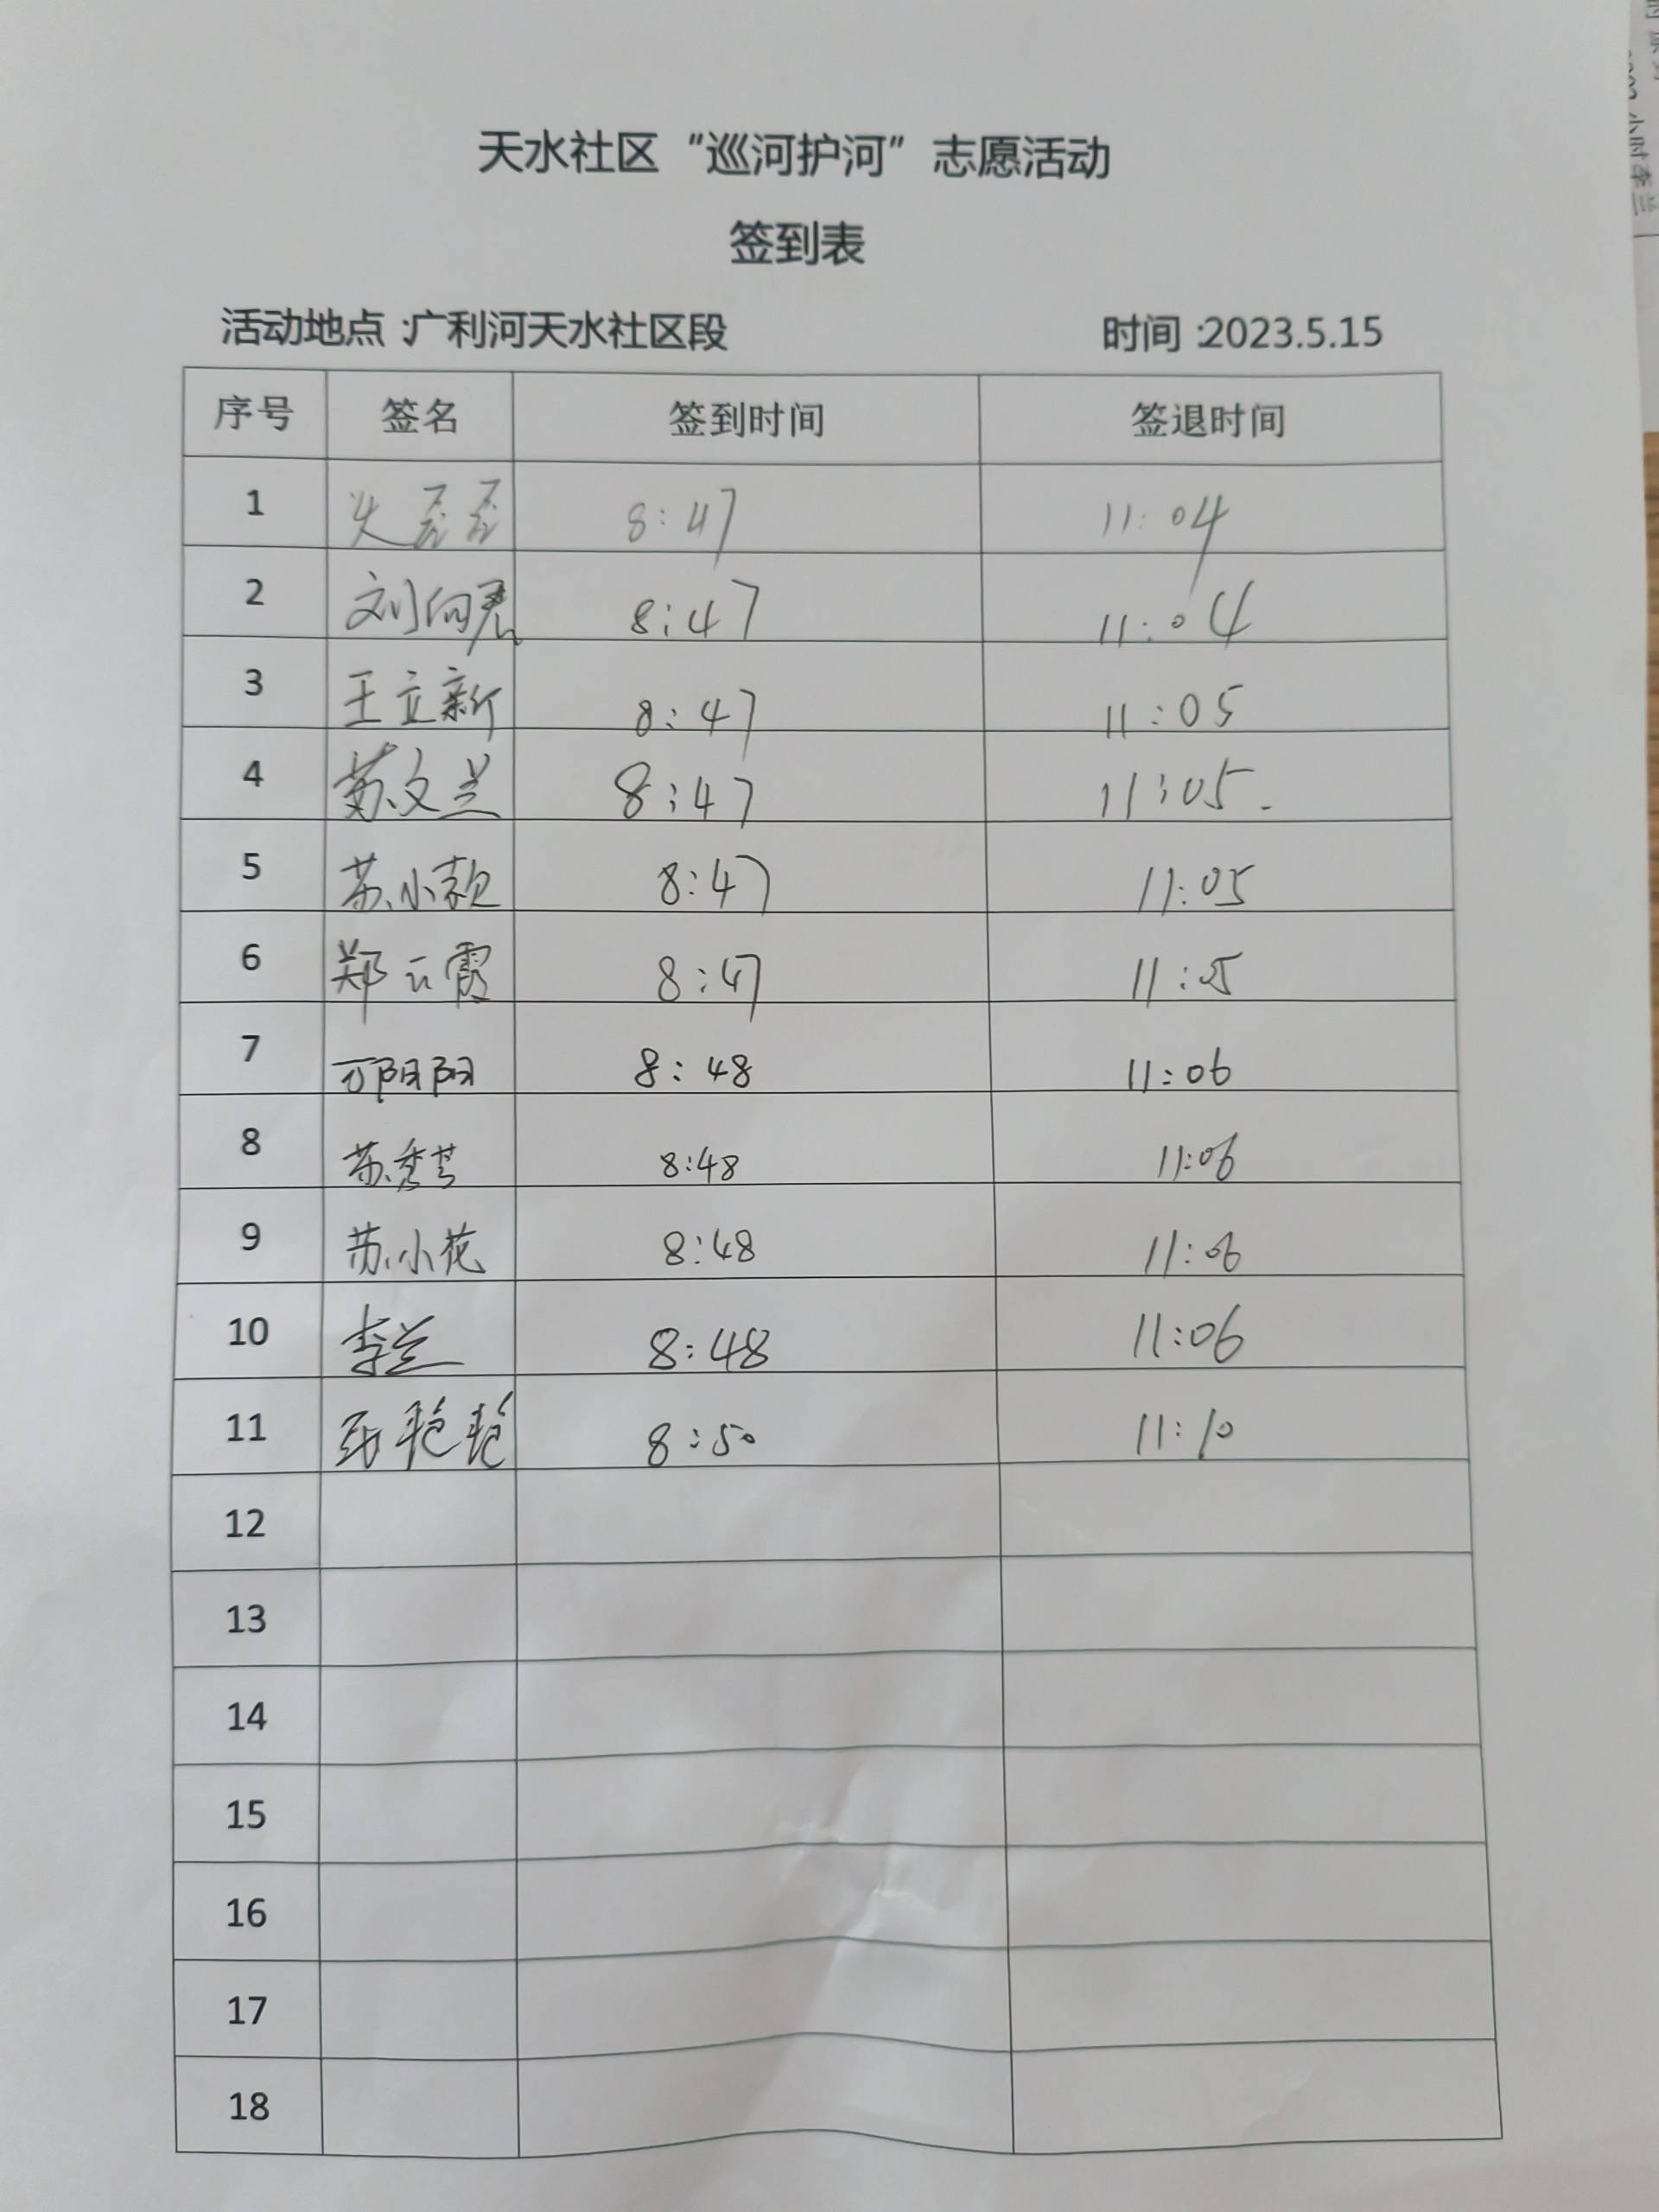 天水社区“巡河护河”志愿活动
签到表
活动地点:广利河天水社区段 时间:2023.5.15
序号 签名 签到时间 签退时间
1 8:47 11:04
2 刘向君 8:47 11:04
3 王立新 8:47 11:05
4 苏文兰 8:47 11:05.
5 苏小 8:47 11:05
6 郑云霞 8:47 11:05
7 万阳阳 8:48 11:06
8 苏秀芝 8:48 11:06
9 苏小花 8:48 11:06
10 李兰 8:48 11:06
11 张艳艳 8:50 11:10
12
13
14
15
16
17
18
小时李兰